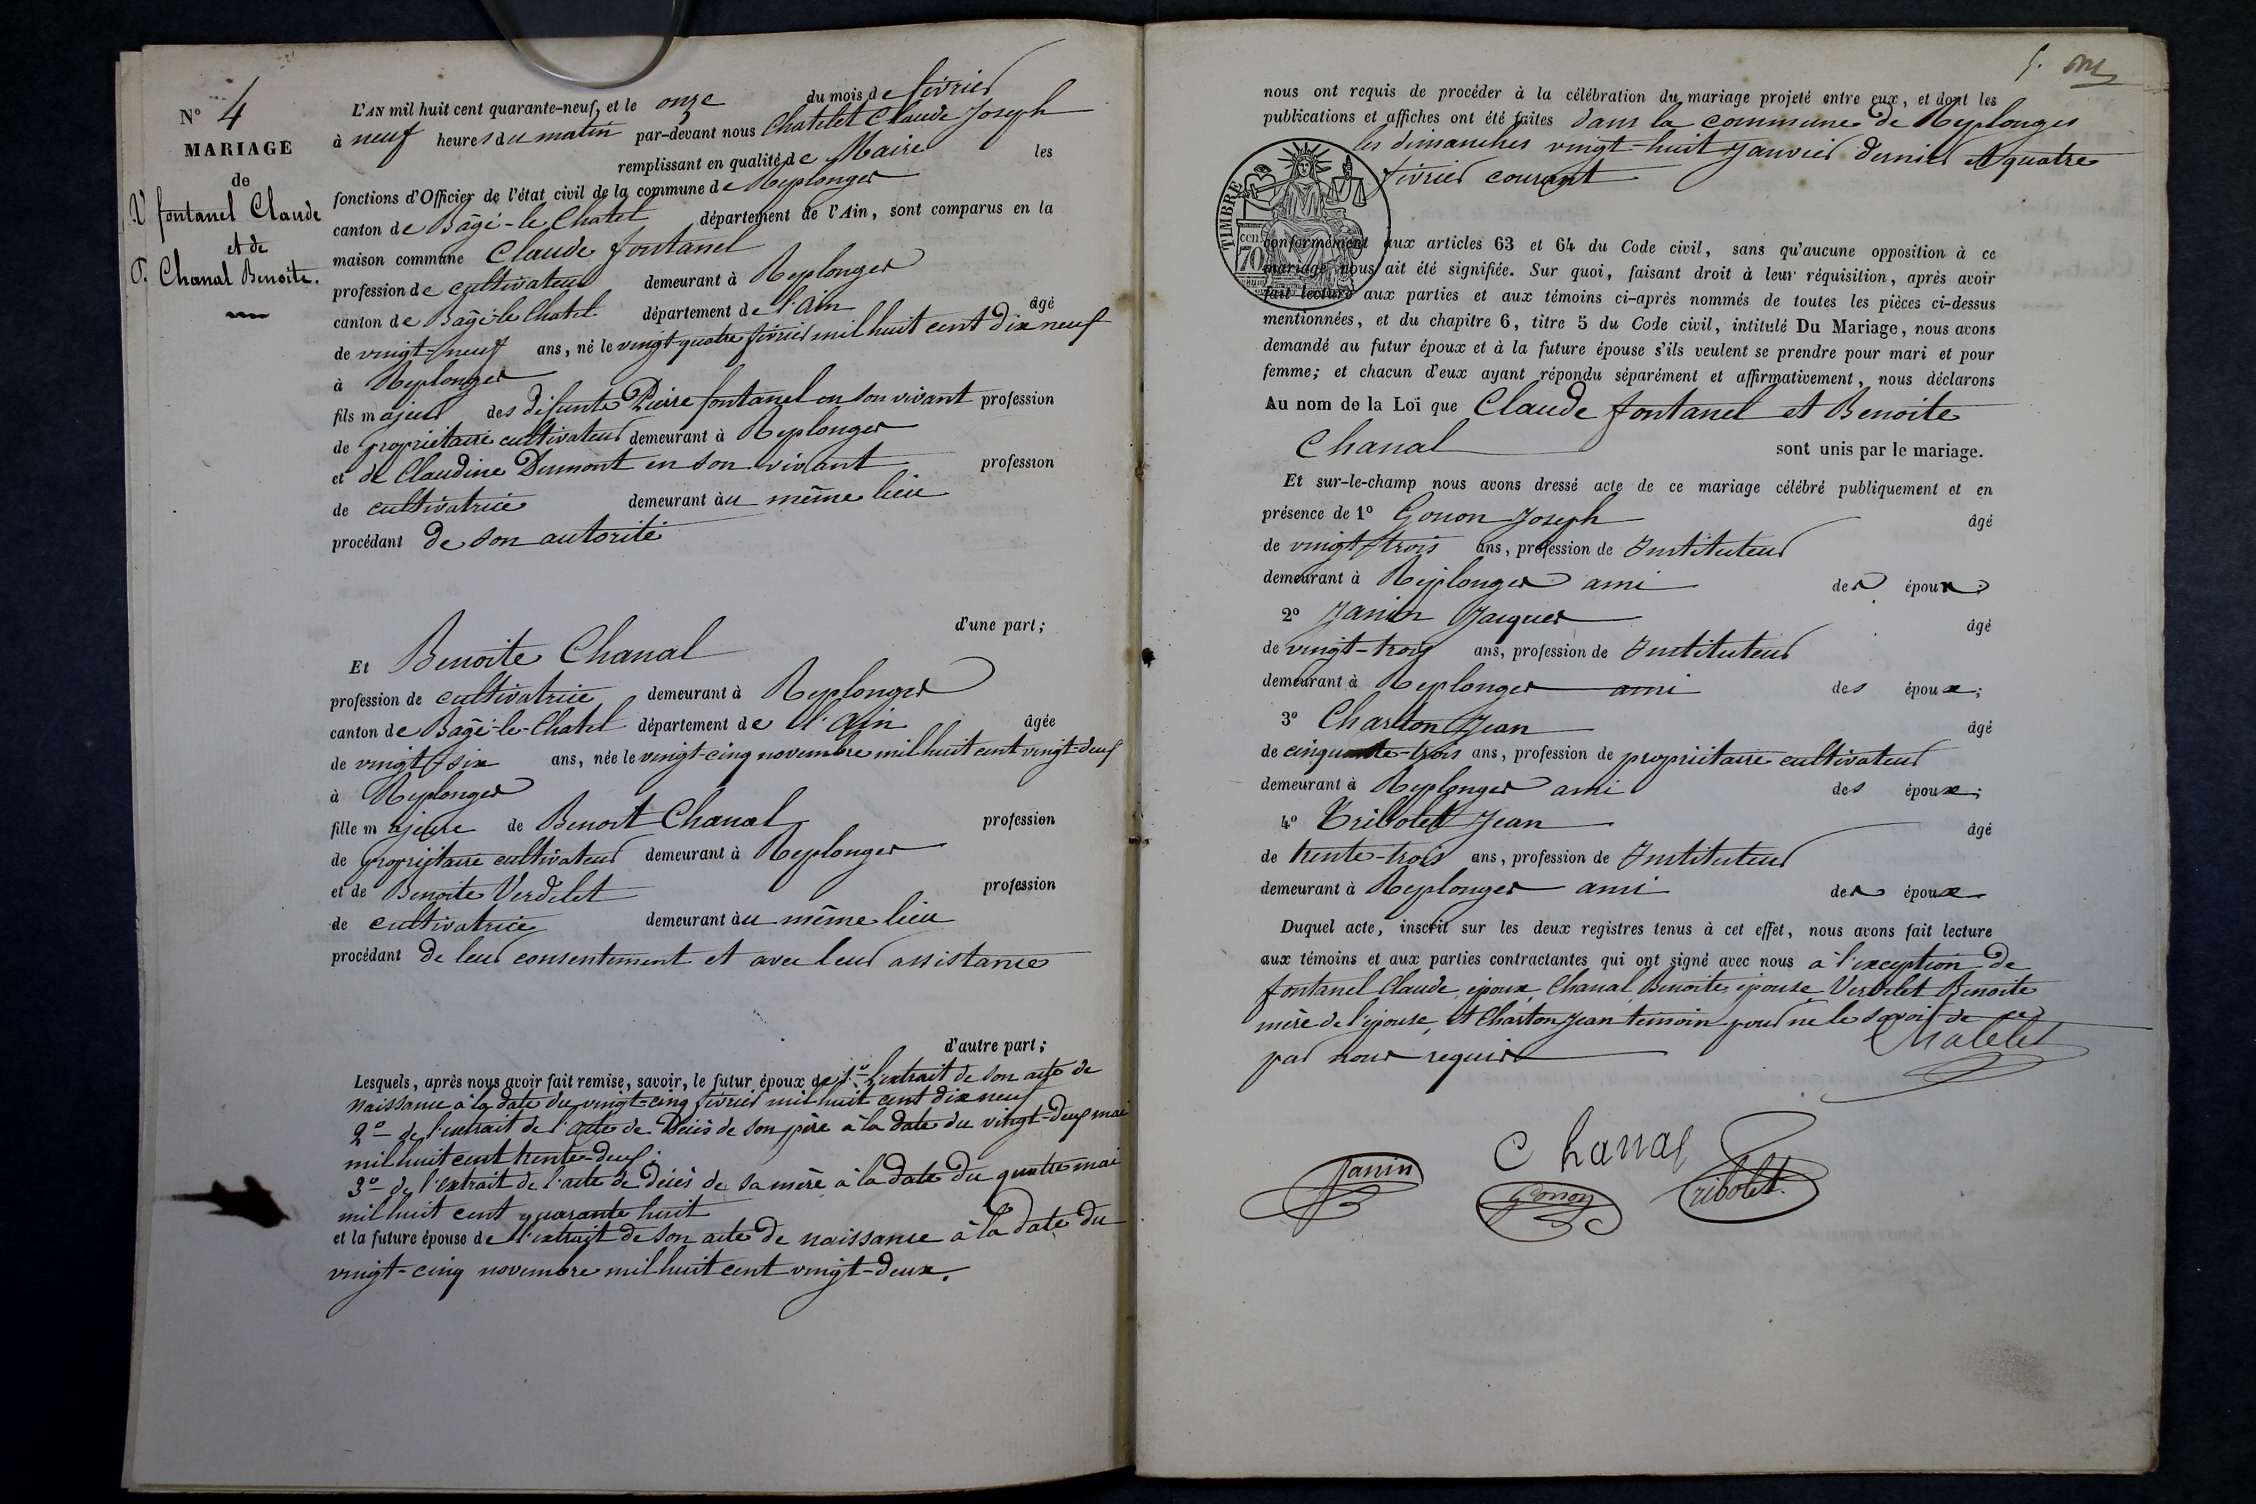 N° 4
MARIAGE
de
fontanel Claude
et de
Chanal Benoite.
L'AN mil huit cent quarante-neuf, et le onze du mois de février
à neuf heures du matin par-devant nous Chatelet Claude Joseph
remplissant en qualité de Maire les
fonctions d'Officier de l'état civil de la commune de Replonges
canton de Bagé-le-Chatel département de l'Ain, sont comparus en la
maison commune Claude fontanel
profession de cultivateur demeurant à Replonges
canton de Bagé-le-Chatel département de l'Ain âgé
de vingt-neuf ans, né le vingt-quatre février mil huit cent dix neuf
à Replonges
fils majeur des défunts Pierre fontanel en son vivant profession
de propriétaire cultivateur demeurant à Replonges
et de Claudine Dumont en son vivant profession
de cultivatrice demeurant au même lieu
procédant de son autorité
d'une part;
Et Benoite Chanal
profession de cultivatrice demeurant à Replonges
canton de Bagé-le-Chatel département de l'Ain âgée
de vingt-six ans, née le vingt-cinq novembre mil huit cent vingt-deux
à Replonges
fille majeure de Benoit Chanal profession
de propriétaire cultivateur demeurant à Replonges
et de Benoite Verdelet profession
de cultivatrice demeurant au même lieu
procédant de leur consentement et avec leur assistance
d'autre part;
Lesquels, après nous avoir fait remise, savoir, le futur époux de 1° l'extrait de son acte de
naissance à la date du vingt-cinq février mil huit cent dix neuf
2° de l'extrait de l'acte de décès de son père à la date du vingt-deux mai
mil huit cent trente-deux.
3° de l'extrait de l'acte de décès de sa mère à la date du quatre mai
mil huit cent quarante huit
et la future épouse de l'extrait de son acte de naissance à la date du
vingt-cinq novembre mil huit cent vingt-deux.
5.
nous ont requis de procéder à la célébration du mariage projeté entre eux, et dont les
publications et affiches ont été faites dans la commune de Replonges
les dimanches vingt-huit janvier dernier et quatre
février courant
TIMBRE
cen
70
conformément aux articles 63 et 64 du Code civil, sans qu'aucune opposition à ce
mariage nous ait été signifiée. Sur quoi, faisant droit à leur réquisition, après avoir
fait lecture aux parties et aux témoins ci-après nommés de toutes les pièces ci-dessus
mentionnées, et du chapitre 6, titre 5 du Code civil, intitulé Du Mariage, nous avons
demandé au futur époux et à la future épouse s'ils veulent se prendre pour mari et pour
femme; et chacun d'eux ayant répondu séparément et affirmativement, nous déclarons
Au nom de la Loi que Claude fontanel et Benoite
Chanal sont unis par le mariage.
Et sur-le-champ nous avons dressé acte de ce mariage célébré publiquement et en
présence de 1° Gonon Joseph âgé
de vingt-trois ans, profession de Instituteur
demeurant à Replonges ami des époux;
2° Janin Jacques âgé
de vingt-trois ans, profession de Instituteur
demeurant à Replonges ami des époux;
3° Charton Jean âgé
de cinquante-trois ans, profession de propriétaire cultivateur
demeurant à Replonges ami des époux;
4° Tribolet Jean âgé
de trente-trois ans, profession de Instituteur
demeurant à Replonges ami des époux
Duquel acte, inscrit sur les deux registres tenus à cet effet, nous avons fait lecture
aux témoins et aux parties contractantes qui ont signé avec nous à l'exception de
fontanel Claude époux, Chanal Benoite épouse, Verdelet Benoite
mère de l'épouse, et Charton Jean témoin pour ne le savoir de ce
par nous requis
Chatelet
Chanal
Janin
Gonon
Tribolet